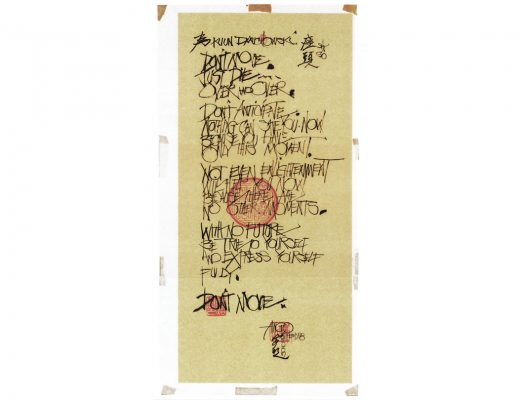 KUUN
DON'T MOVE.
JUST DIE....
OVER AND OVER.
DON'T ANTICIPATE.
NOTHING CAN SAVE YOU NOW
BECAUSE YOU HAVE
ONLY THIS MOMENT.
NOT EVEN ENLIGHTENMENT
WILL HELP YOU NOW
BECAUSE THERE ARE
NO OTHER MOMENTS.
WITH NO FUTURE
BE TRUE TO YOURSELF
AND EXPRESS YOURSELF
FULLY.
DON'T MOVE.